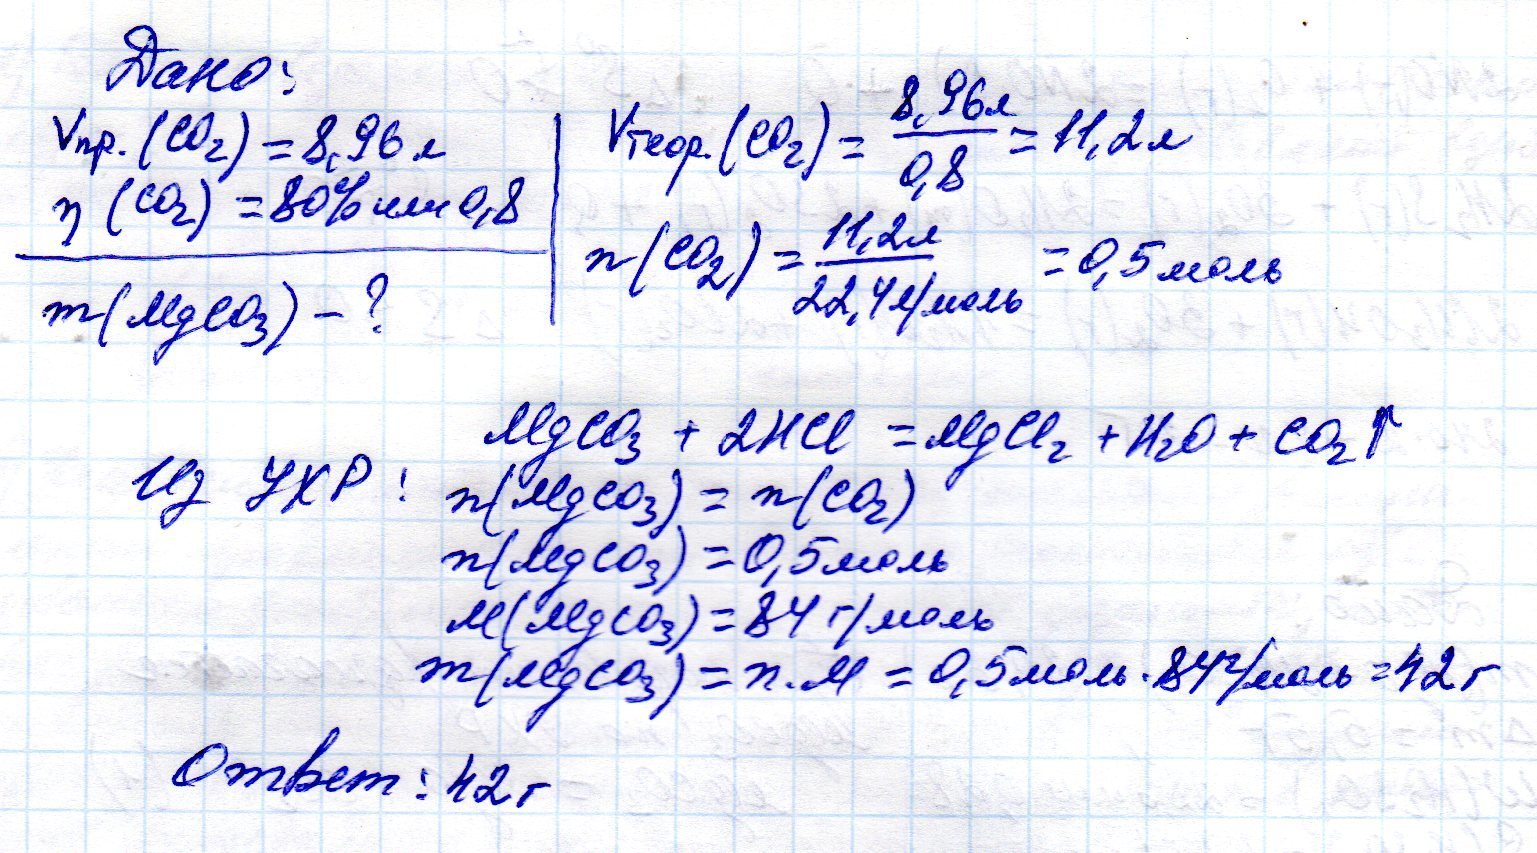 Дано:
Vпр.(CO₂) = 8,96 л
η (CO₂) = 80% или 0,8
m(MgCO₃) – ?
Vтеор.(CO₂) = 8,96л / 0,8 = 11,2л
n(CO₂) = 11,2л / 22,4л/моль = 0,5моль
MgCO₃ + 2HCl = MgCl₂ + H₂O + CO₂↑
Из УХР: n(MgCO₃) = n(CO₂)
n(MgCO₃) = 0,5моль
M(MgCO₃) = 84 г/моль
m(MgCO₃) = n·M = 0,5моль·84г/моль = 42г
Ответ: 42г